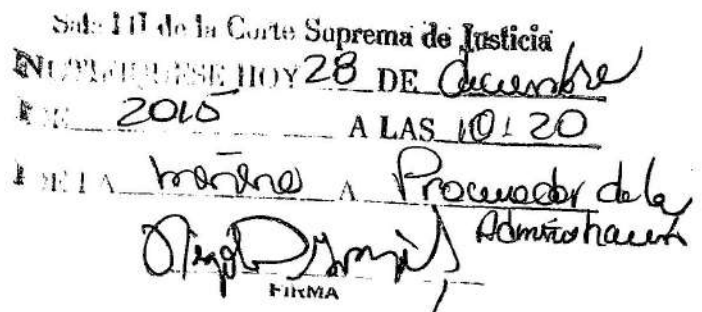 Sala III de la Corte Suprema de Justicia
NOTIFIQUESE HOY 28 DE diciembre
DE 2015 A LAS 10:20
DE LA mañana A Procurador de la
Administración
FIRMA